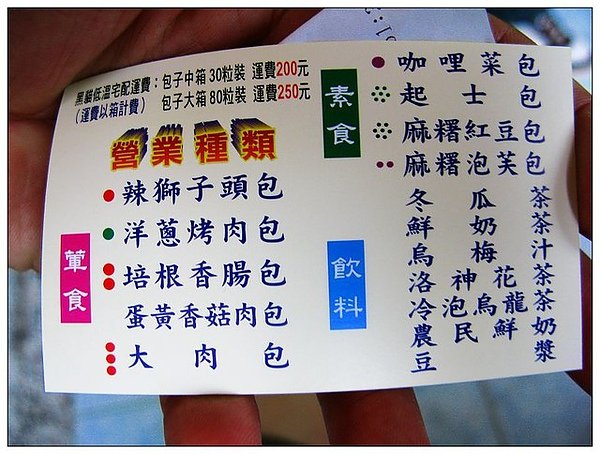 黑貓低溫宅配運費：包子中箱30粒裝 運費200元
（運費以箱計費） 包子大箱80粒裝 運費250元
營業種類
葷食
辣獅子頭包
洋蔥烤肉包
培根香腸包
蛋黃香菇肉包
大肉包
素食
咖哩菜包
起士包
麻糬紅豆包
麻糬泡芙包
飲料
冬瓜茶
鮮奶茶
烏梅汁
洛神花茶
冷泡烏龍茶
農民鮮奶
豆漿